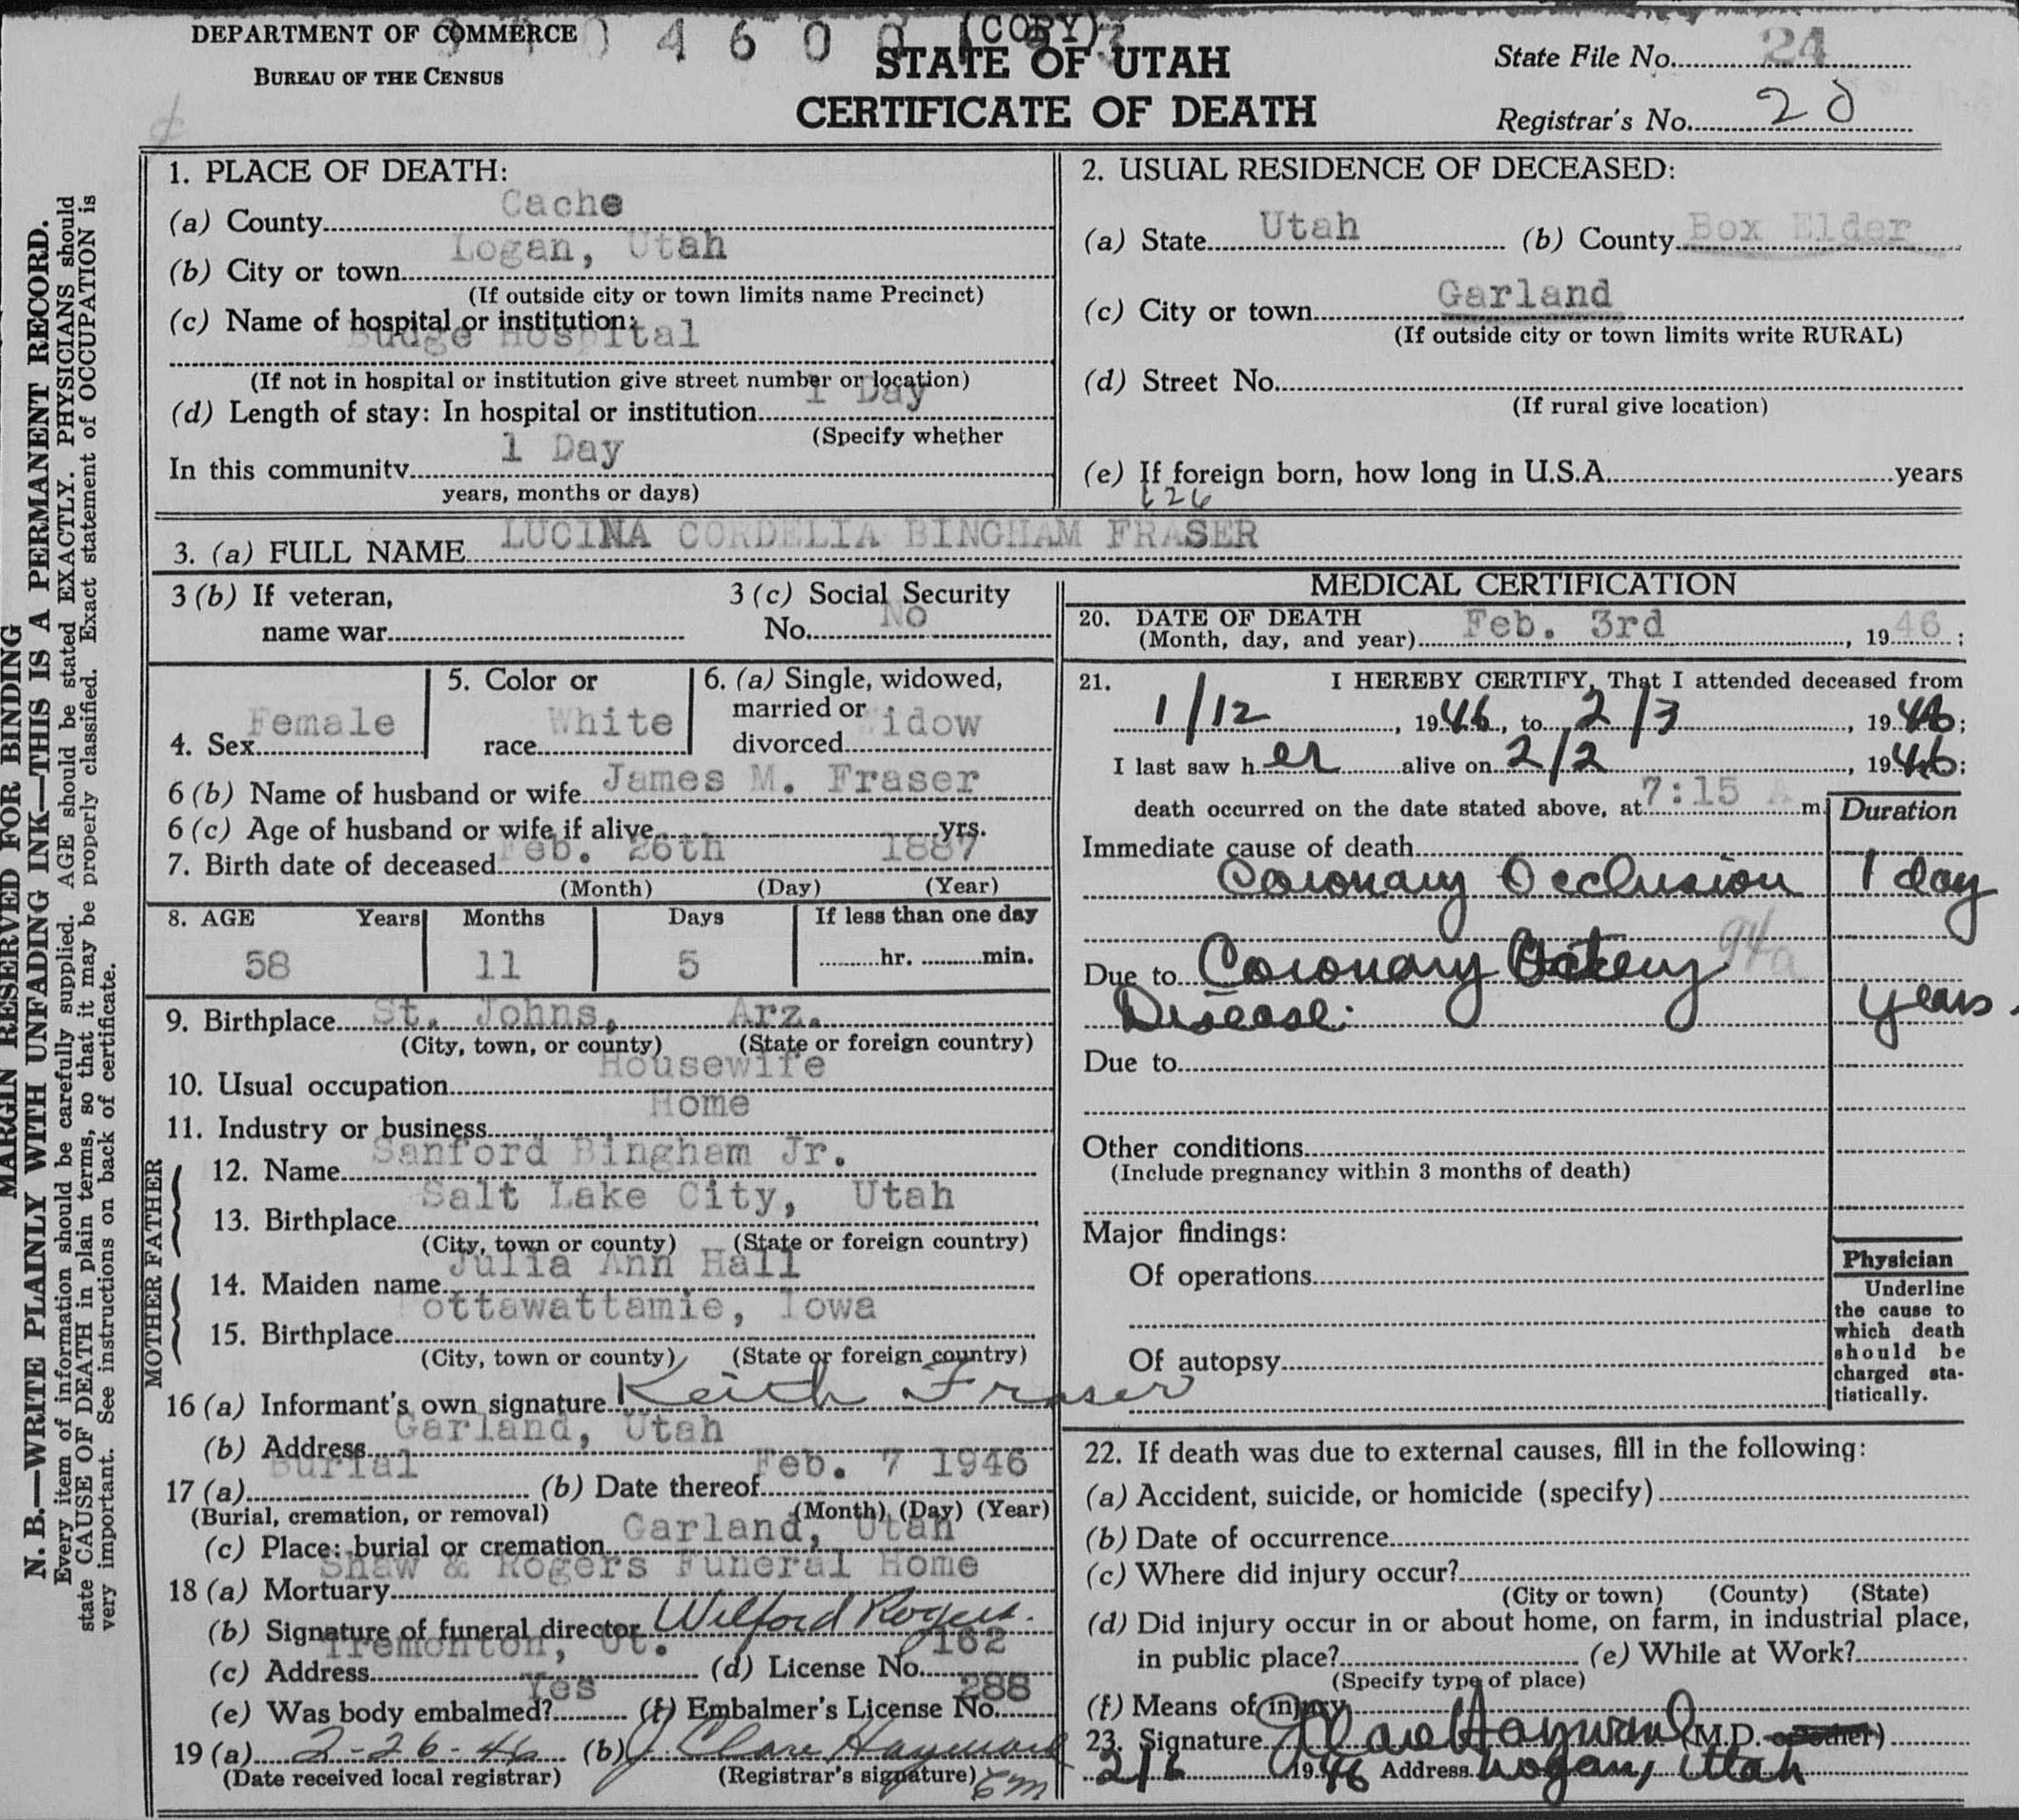 DEPARTMENT OF COMMERCE
BUREAU OF THE CENSUS
4 6 0 0
(COPY)
STATE OF UTAH
CERTIFICATE OF DEATH
State File No. 24
Registrar's No. 20
MARGIN RESERVED FOR BINDING
N. B.—WRITE PLAINLY WITH UNFADING INK—THIS IS A PERMANENT RECORD.
Every item of information should be carefully supplied. AGE should be stated EXACTLY. PHYSICIANS should
state CAUSE OF DEATH in plain terms, so that it may be properly classified. Exact statement of OCCUPATION is
very important. See instructions on back of certificate.
1. PLACE OF DEATH:
(a) County Cache
(b) City or town Logan, Utah
(If outside city or town limits name Precinct)
(c) Name of hospital or institution:
Budge Hospital
(If not in hospital or institution give street number or location)
(d) Length of stay: In hospital or institution 1 Day
(Specify whether
In this community 1 Day
years, months or days)
2. USUAL RESIDENCE OF DECEASED:
(a) State Utah (b) County Box Elder
(c) City or town Garland
(If outside city or town limits write RURAL)
(d) Street No.
(If rural give location)
(e) If foreign born, how long in U.S.A. years
3. (a) FULL NAME LUCINA CORDELIA BINGHAM FRASER
3 (b) If veteran,
name war
3 (c) Social Security
No. No
4. Sex Female
5. Color or
race White
6. (a) Single, widowed,
married or
divorced Widow
6 (b) Name of husband or wife James M. Fraser
6 (c) Age of husband or wife if alive yrs.
7. Birth date of deceased Feb. 26th 1887
(Month) (Day) (Year)
8. AGE Years Months Days If less than one day
58 11 5 hr. min.
9. Birthplace St. Johns, Arz.
(City, town, or county) (State or foreign country)
10. Usual occupation Housewife
11. Industry or business Home
FATHER
12. Name Sanford Bingham Jr.
13. Birthplace Salt Lake City, Utah
(City, town or county) (State or foreign country)
MOTHER
14. Maiden name Julia Ann Hall
15. Birthplace Pottawattamie, Iowa
(City, town or county) (State or foreign country)
16 (a) Informant's own signature Keith Fraser
(b) Address Garland, Utah
17 (a) Burial (b) Date thereof Feb. 7 1946
(Burial, cremation, or removal) (Month) (Day) (Year)
(c) Place: burial or cremation Garland, Utah
18 (a) Mortuary Shaw & Rogers Funeral Home
(b) Signature of funeral director Wilford Rogers.
(c) Address Tremonton, Ut. (d) License No. 162
(e) Was body embalmed? Yes (f) Embalmer's License No. 288
19 (a) 2-26-46 (b) J Clare Hayward
(Date received local registrar) (Registrar's signature) Em
MEDICAL CERTIFICATION
20. DATE OF DEATH
(Month, day, and year) Feb. 3rd, 1946;
21. I HEREBY CERTIFY, That I attended deceased from
1/12, 1946, to 2/3, 1946;
I last saw her alive on 2/2, 1946;
death occurred on the date stated above, at 7:15 A m.
Duration
Immediate cause of death
Coronary Occlusion 1 day
94a
Due to Coronary Artery
Disease. years.
Due to
Other conditions
(Include pregnancy within 3 months of death)
Major findings:
Of operations
Of autopsy
Physician
Underline
the cause to
which death
should be
charged sta-
tistically.
22. If death was due to external causes, fill in the following:
(a) Accident, suicide, or homicide (specify)
(b) Date of occurrence
(c) Where did injury occur?
(City or town) (County) (State)
(d) Did injury occur in or about home, on farm, in industrial place,
in public place? (e) While at Work?
(Specify type of place)
(f) Means of injury
23. Signature J Clare Hayward (M.D. or other)
2/6 1946 Address Logan, Utah